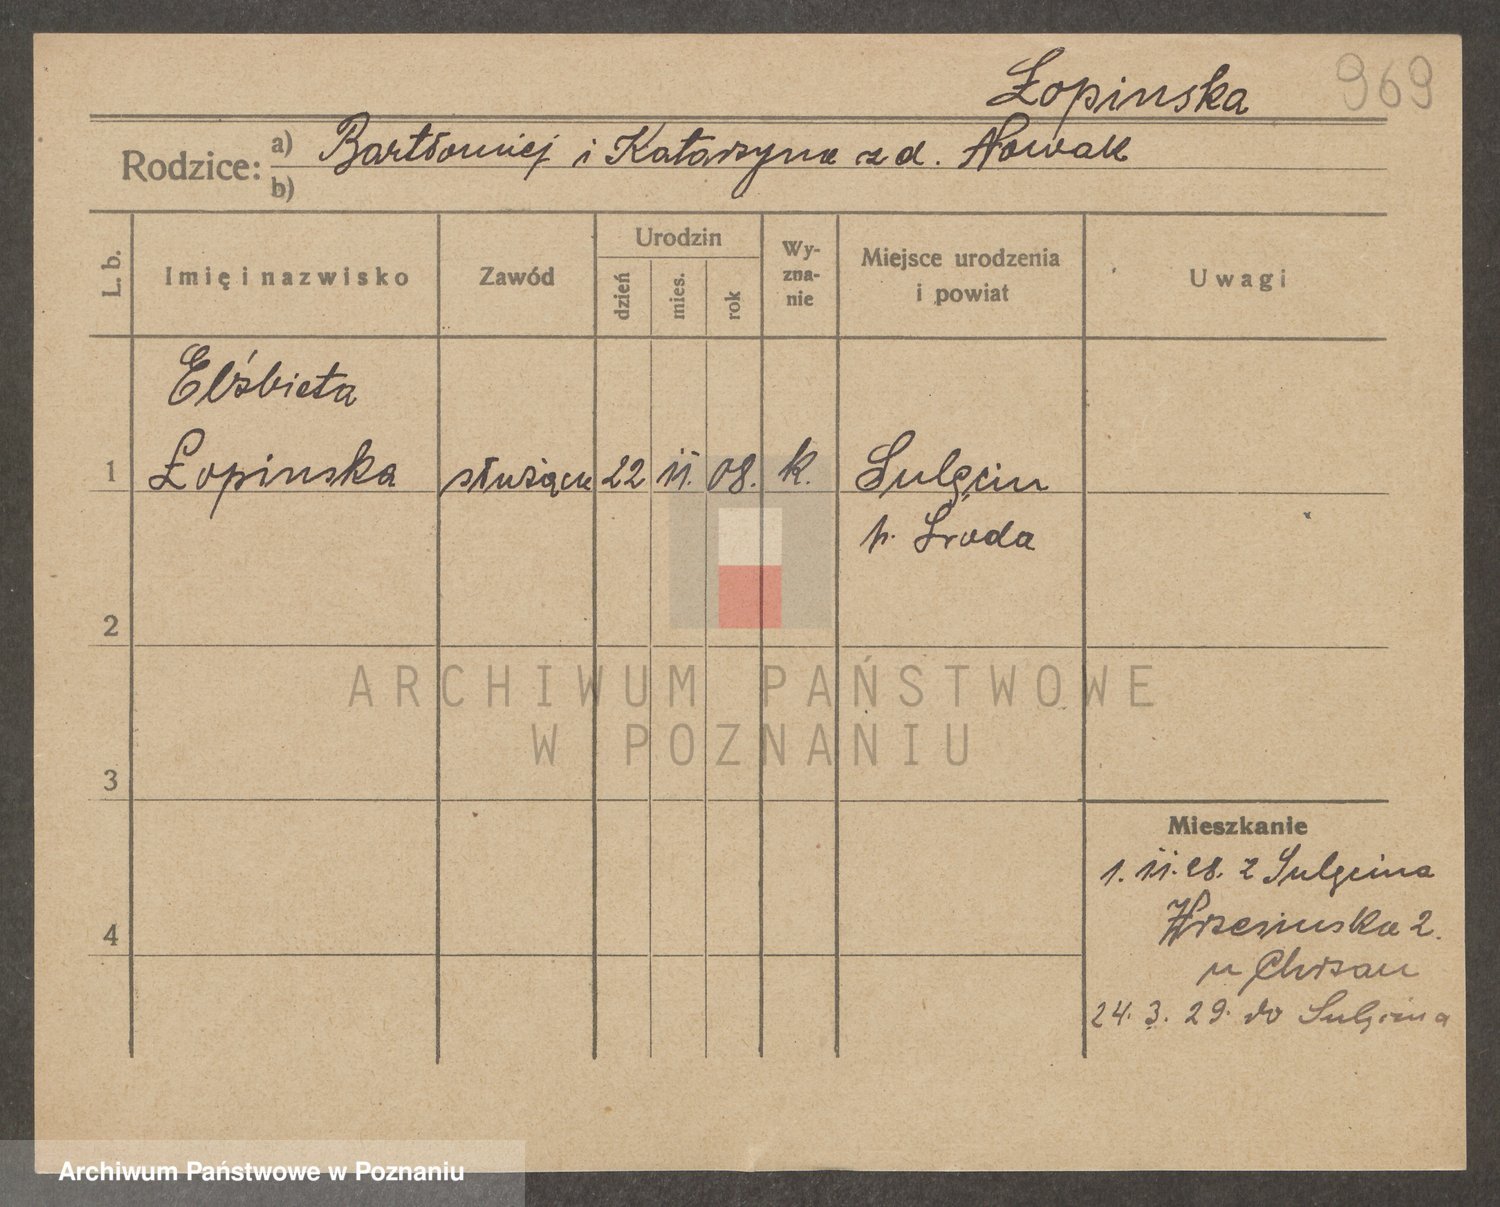 Łopinska 969
Rodzice: a) Bartłomiej i Katarzyna z d. Nowak
b)
L. b.
Imię i nazwisko
Zawód
Urodzin
dzień
mies.
rok
Wy-
zna-
nie
Miejsce urodzenia
i powiat
Uwagi
Elżbieta
1 Łopinska służąca 22 11. 08. k. Sulęcin
p. Sroda
2
3
4
Mieszkanie
1. 11. 28. z Sulęcina
Wrzesinska 2.
u Chrzan
24. 3. 29. do Sulęcina
ARCHIWUM PAŃSTWOWE
W POZNANIU
Archiwum Państwowe w Poznaniu